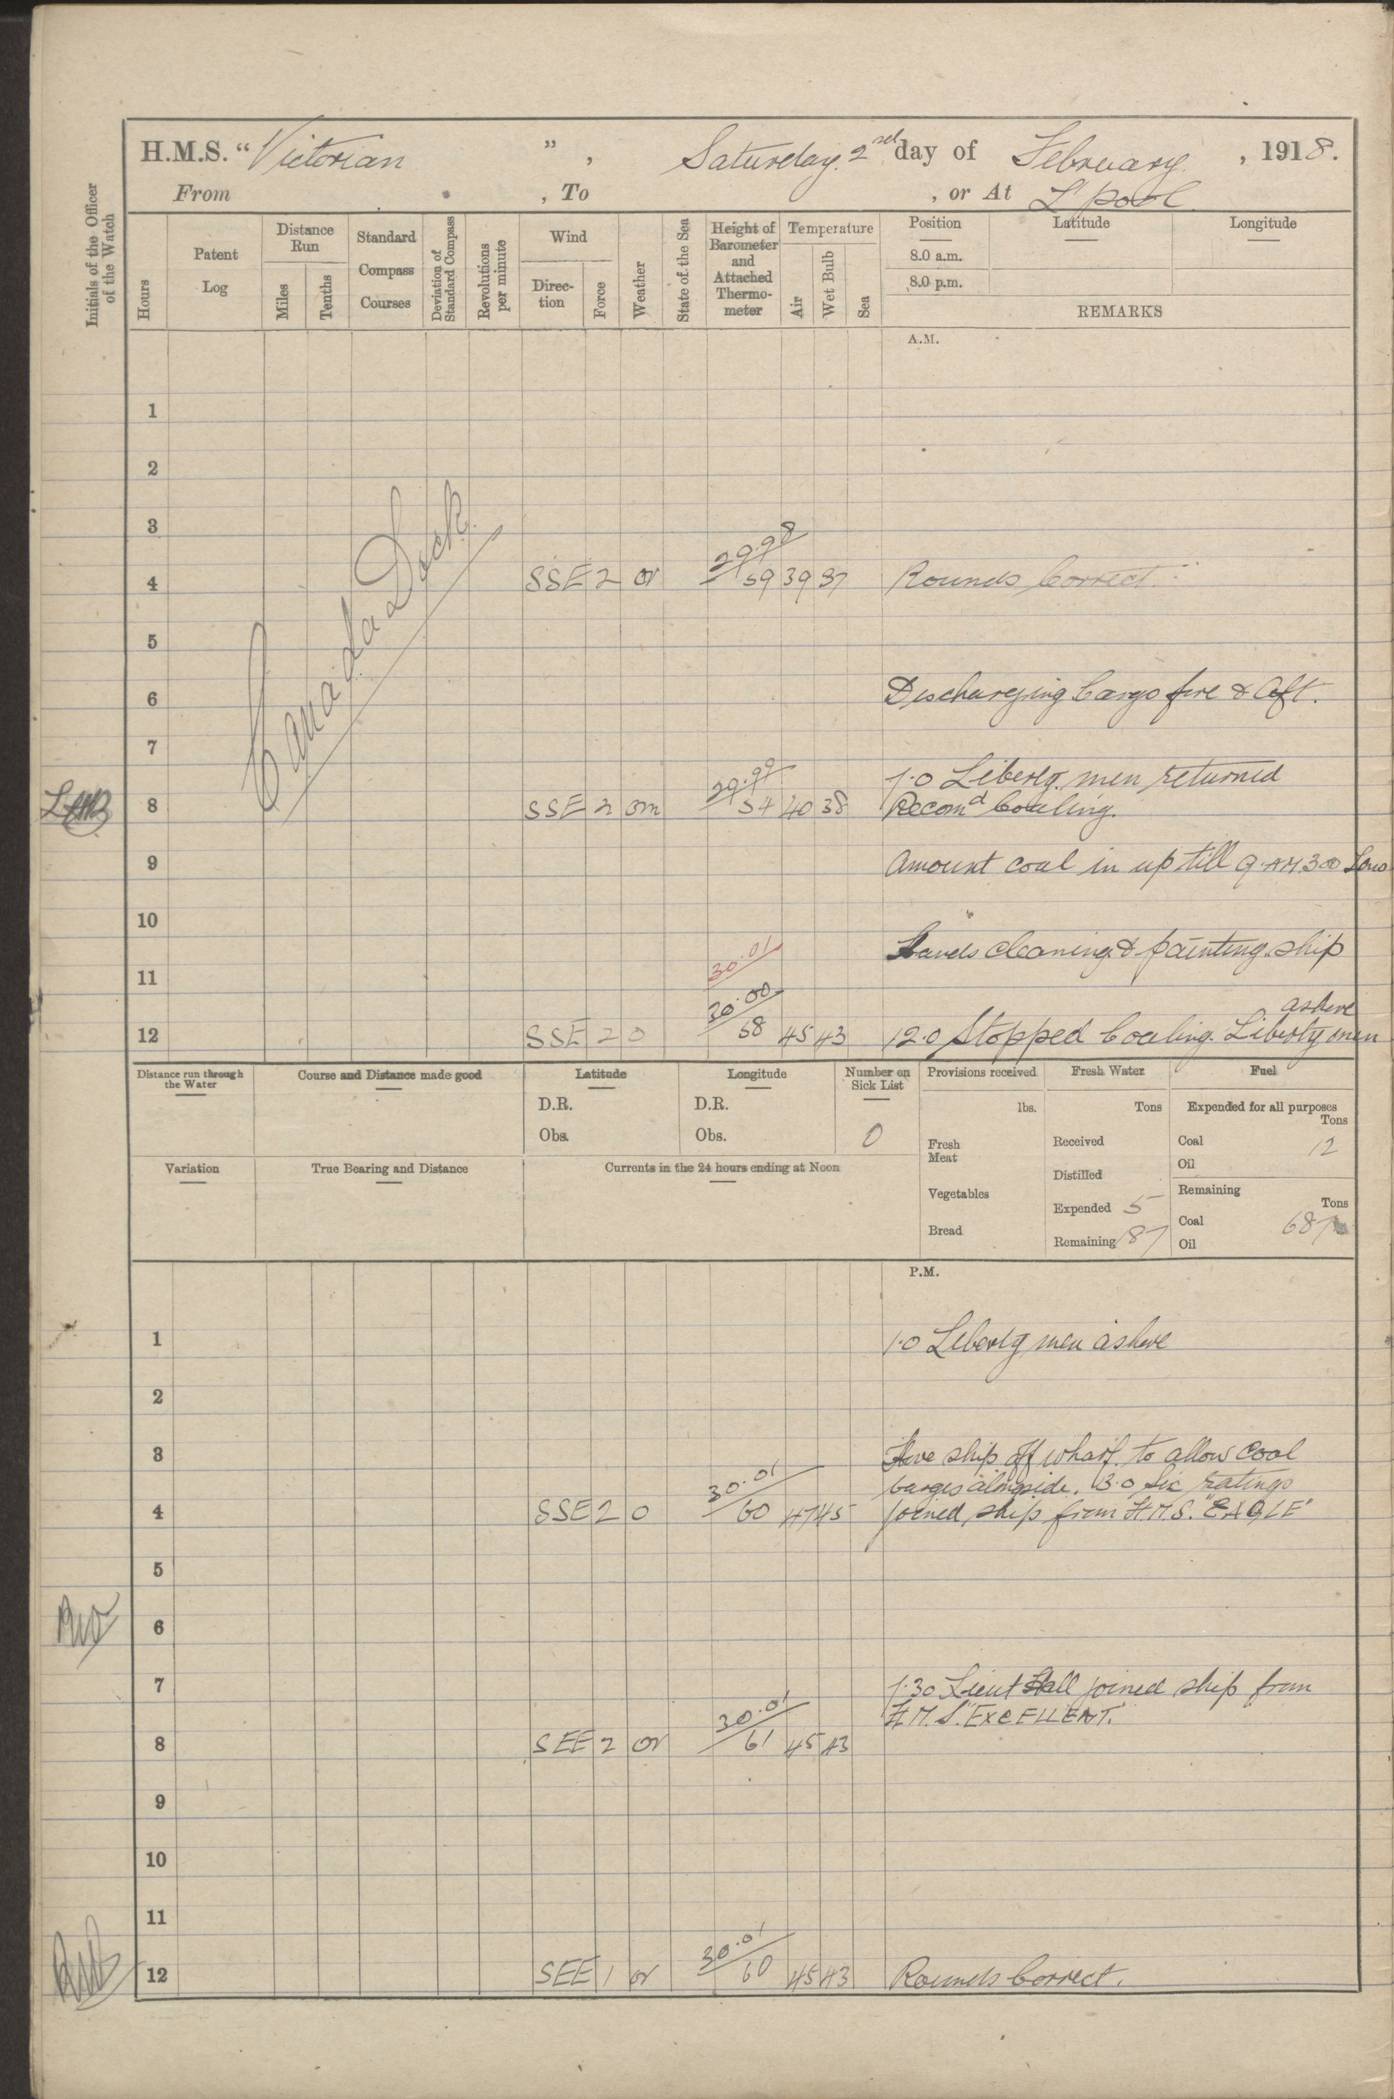 H.M.S. " Victorian " , Saturday. 2nd day of February , 1918.
From , To , or At L'pool
Initials of the Officer of the Watch
Hours
Patent Log
Distance Run
Miles
Tenths
Standard Compass Courses
Deviation of Standard Compass
Revolutions per minute
Wind
Direc-tion
Force
Weather
State of the Sea
Height of Barometer and Attached Thermo-meter
Temperature
Air
Wet Bulb
Sea
Position Latitude Longitude
8.0 a.m.
8.0 p.m.
REMARKS
A.M.
Canada Dock.
1
2
3
29.98
4 SSE 2 or 59 39 37 Rounds Correct.
5
6 Discharging Cargo fore & Aft.
7
29.99 7.0 Liberty men returned
8 SSE 2 om 54 40 38 Recomd Coaling.
9 Amount coal in up till 9. AM 300 Tons
10
Hands cleaning & painting ship
30.01
11
30.00 ashore
12 SSE 2 o 58 45 43 12.0 Stopped Coaling. Liberty men
Distance run through the Water
Course and Distance made good
Latitude
D.R.
Obs.
Longitude
D.R.
Obs.
Number on Sick List
0
Provisions received
lbs.
Fresh Meat
Vegetables
Bread
Fresh Water
Tons
Received
Distilled
Expended 5
Remaining 87
Fuel
Expended for all purposes
Tons
Coal 12
Oil
Remaining
Tons
Coal 687
Oil
Variation
True Bearing and Distance
Currents in the 24 hours ending at Noon
P.M.
1 1.0 Liberty men ashore
2
3 ship off wharf. to allow coal
30.01 barges alongside. 3.0 Six ratings
4 SSE 2 o 60 47 45 joined ship from H.M.S. "EAGLE"
5
6
7 7.30 Lieut Hall joined ship from
30.01 H.M.S. "EXCELLENT."
8 SEE 2 or 61 45 43
9
10
11
30.01
12 SEE 1 or 60 45 43 Rounds Correct.